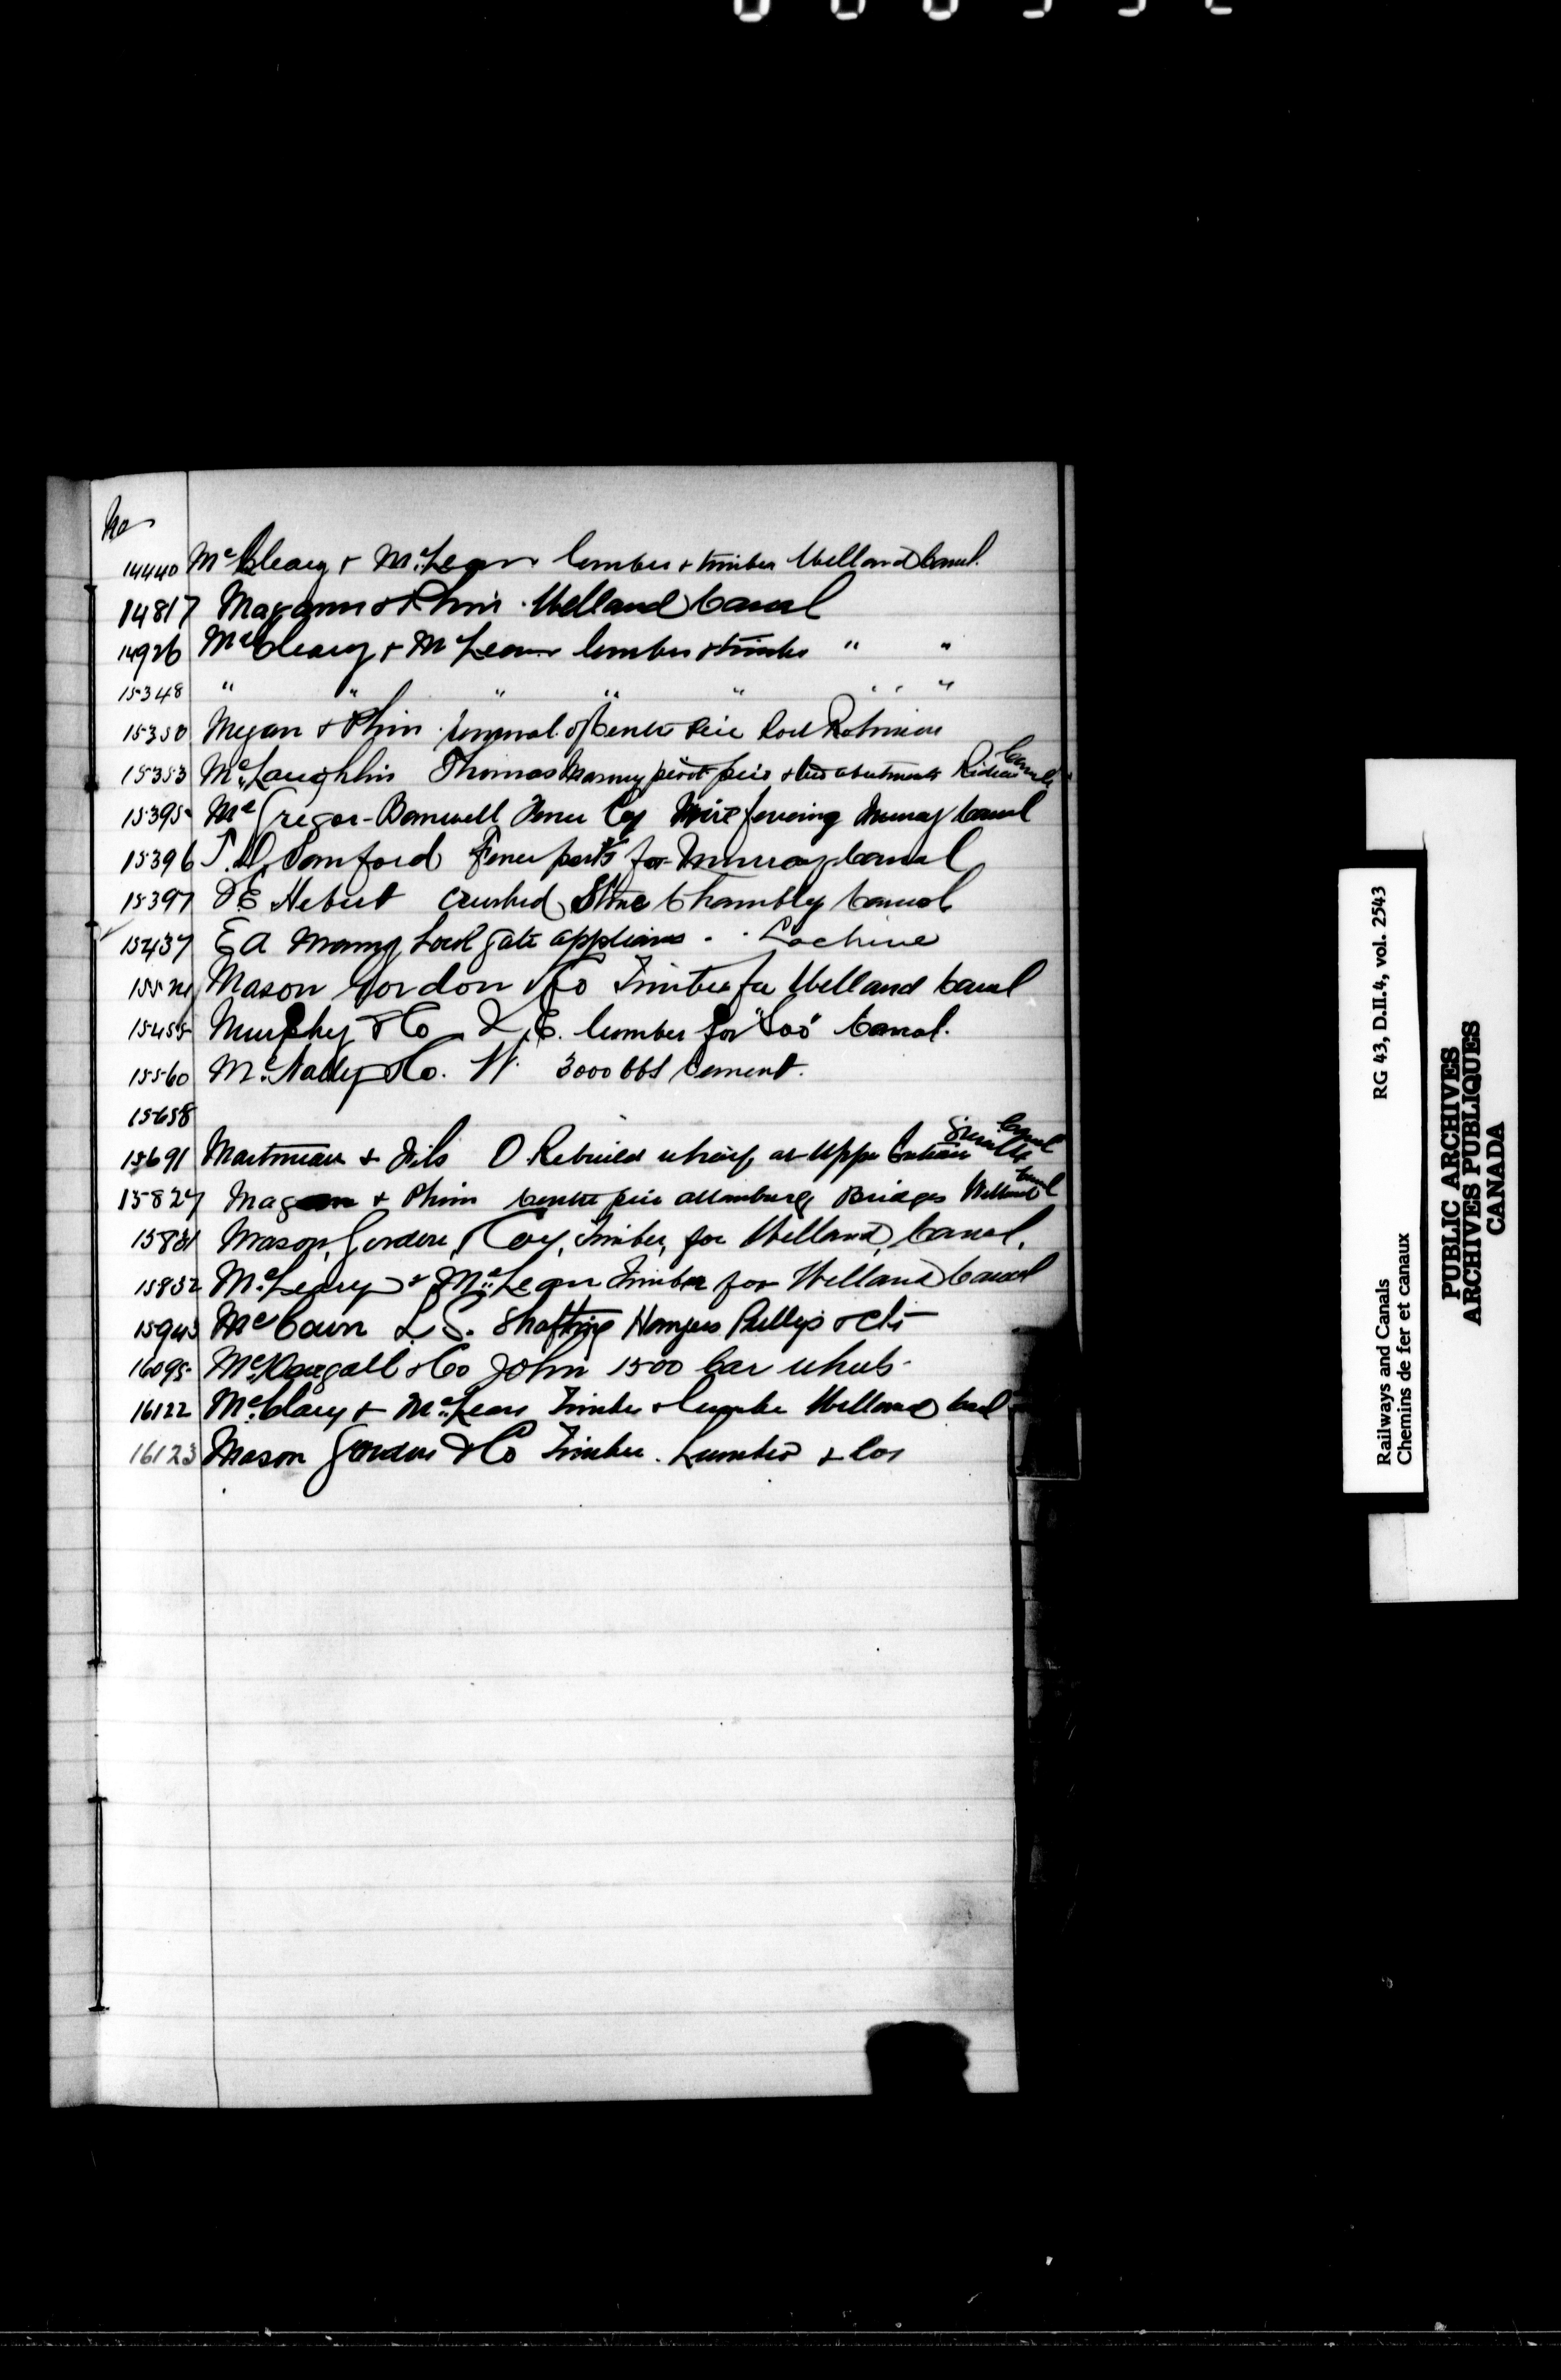 No
14440 McCleary & McLean lumber & timber Welland Canal.
14817 Magann & Phin. Welland Canal
14926 McCleary & McLean lumber & timber " "
15348 " " " " " " "
15350 Megan & Phin. removal of Centre Pier Port Robinson
15353 McLaughlin Thomas Masonry pivot pier & two abutments Rideau Canal
15395 McGregor-Banwell Fence Coy Wire fencing Murray Canal
15396 T. D. Sanford Fence posts for Murray Canal
15397 D E Hebert Crushed Stone Chambly Canal
15437 E A Manny Lock gate appliances . . Lachine
Mason Gordon & Co Timber for Welland Canal
15455 Murphy & Co L. E. lumber for "Soo" Canal.
15560 McNally & Co. W. 3000 bbls Cement.
15658
15691 Martineau & Fils O. Rebuild wharf at Upper Entrance Grenville Canal
15827 Magann & Phin Centre pier Allanburg Bridges Welland Canal
15831 Mason, Gordon & Coy, Timber, for Welland, Canal.
15832 McLeary & McLean Timber for Welland Canal
15945 McCown L. S. Shafting Hangers Pulleys & etc
16095 McDougall & Co John 1500 Car wheels
16122 McClary & McLean Timber & lumber Welland Canal
16123 Mason Gordon & Co Timber. Lumber &
Railways and Canals RG 43, D.II.4, vol. 2543
Chemins de fer et canaux
PUBLIC ARCHIVES
ARCHIVES PUBLIQUES
CANADA